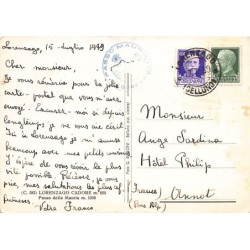 Lorenzago, 15 luglio 1949
Cher monsieur,
Je vous remercie pour la jolie
carte-postal que vous m'avez
envoyé. Excuser-moi si depuis
longtemps je ne vous ai écri.
Ici à Lorenzago je m'amuse
beaucoup avec mes petits amis.
J'ai de vous revoir le plus
vite possible. Recever, je vous
prie, mes salutations les plus
Votre Franco
(C. 285) LORENZAGO CADORE m. 880
Passo della Mauria m. 1298
PASSO MAURIA
Monsieur
Ange Sardina
Hôtel Philip
(France) Annot
(Bas Alp)